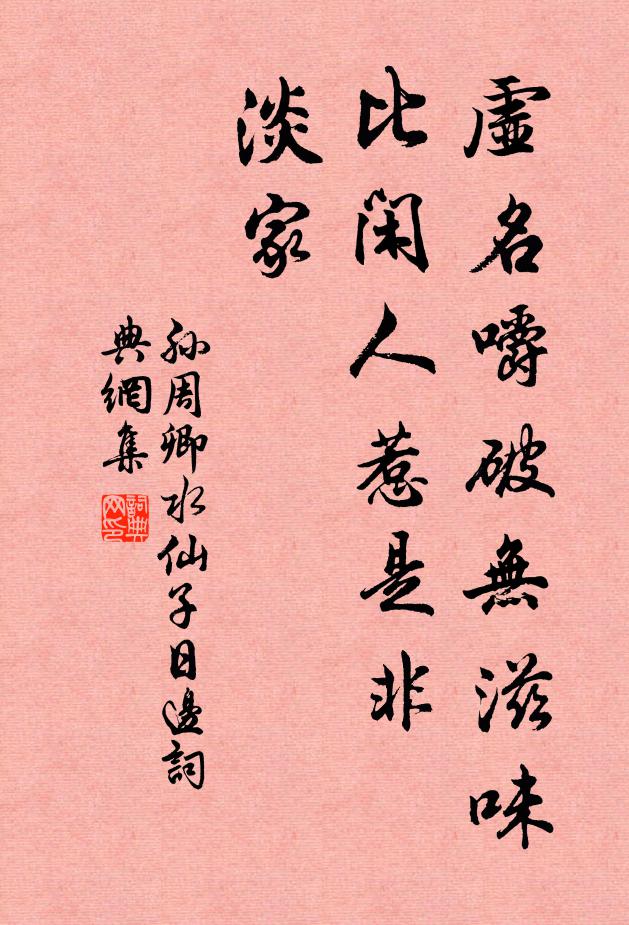 虛名嚼破無滋味
比閑人惹是非
淡家
孙周卿水仙子日邊詞
典網集
詞典网印